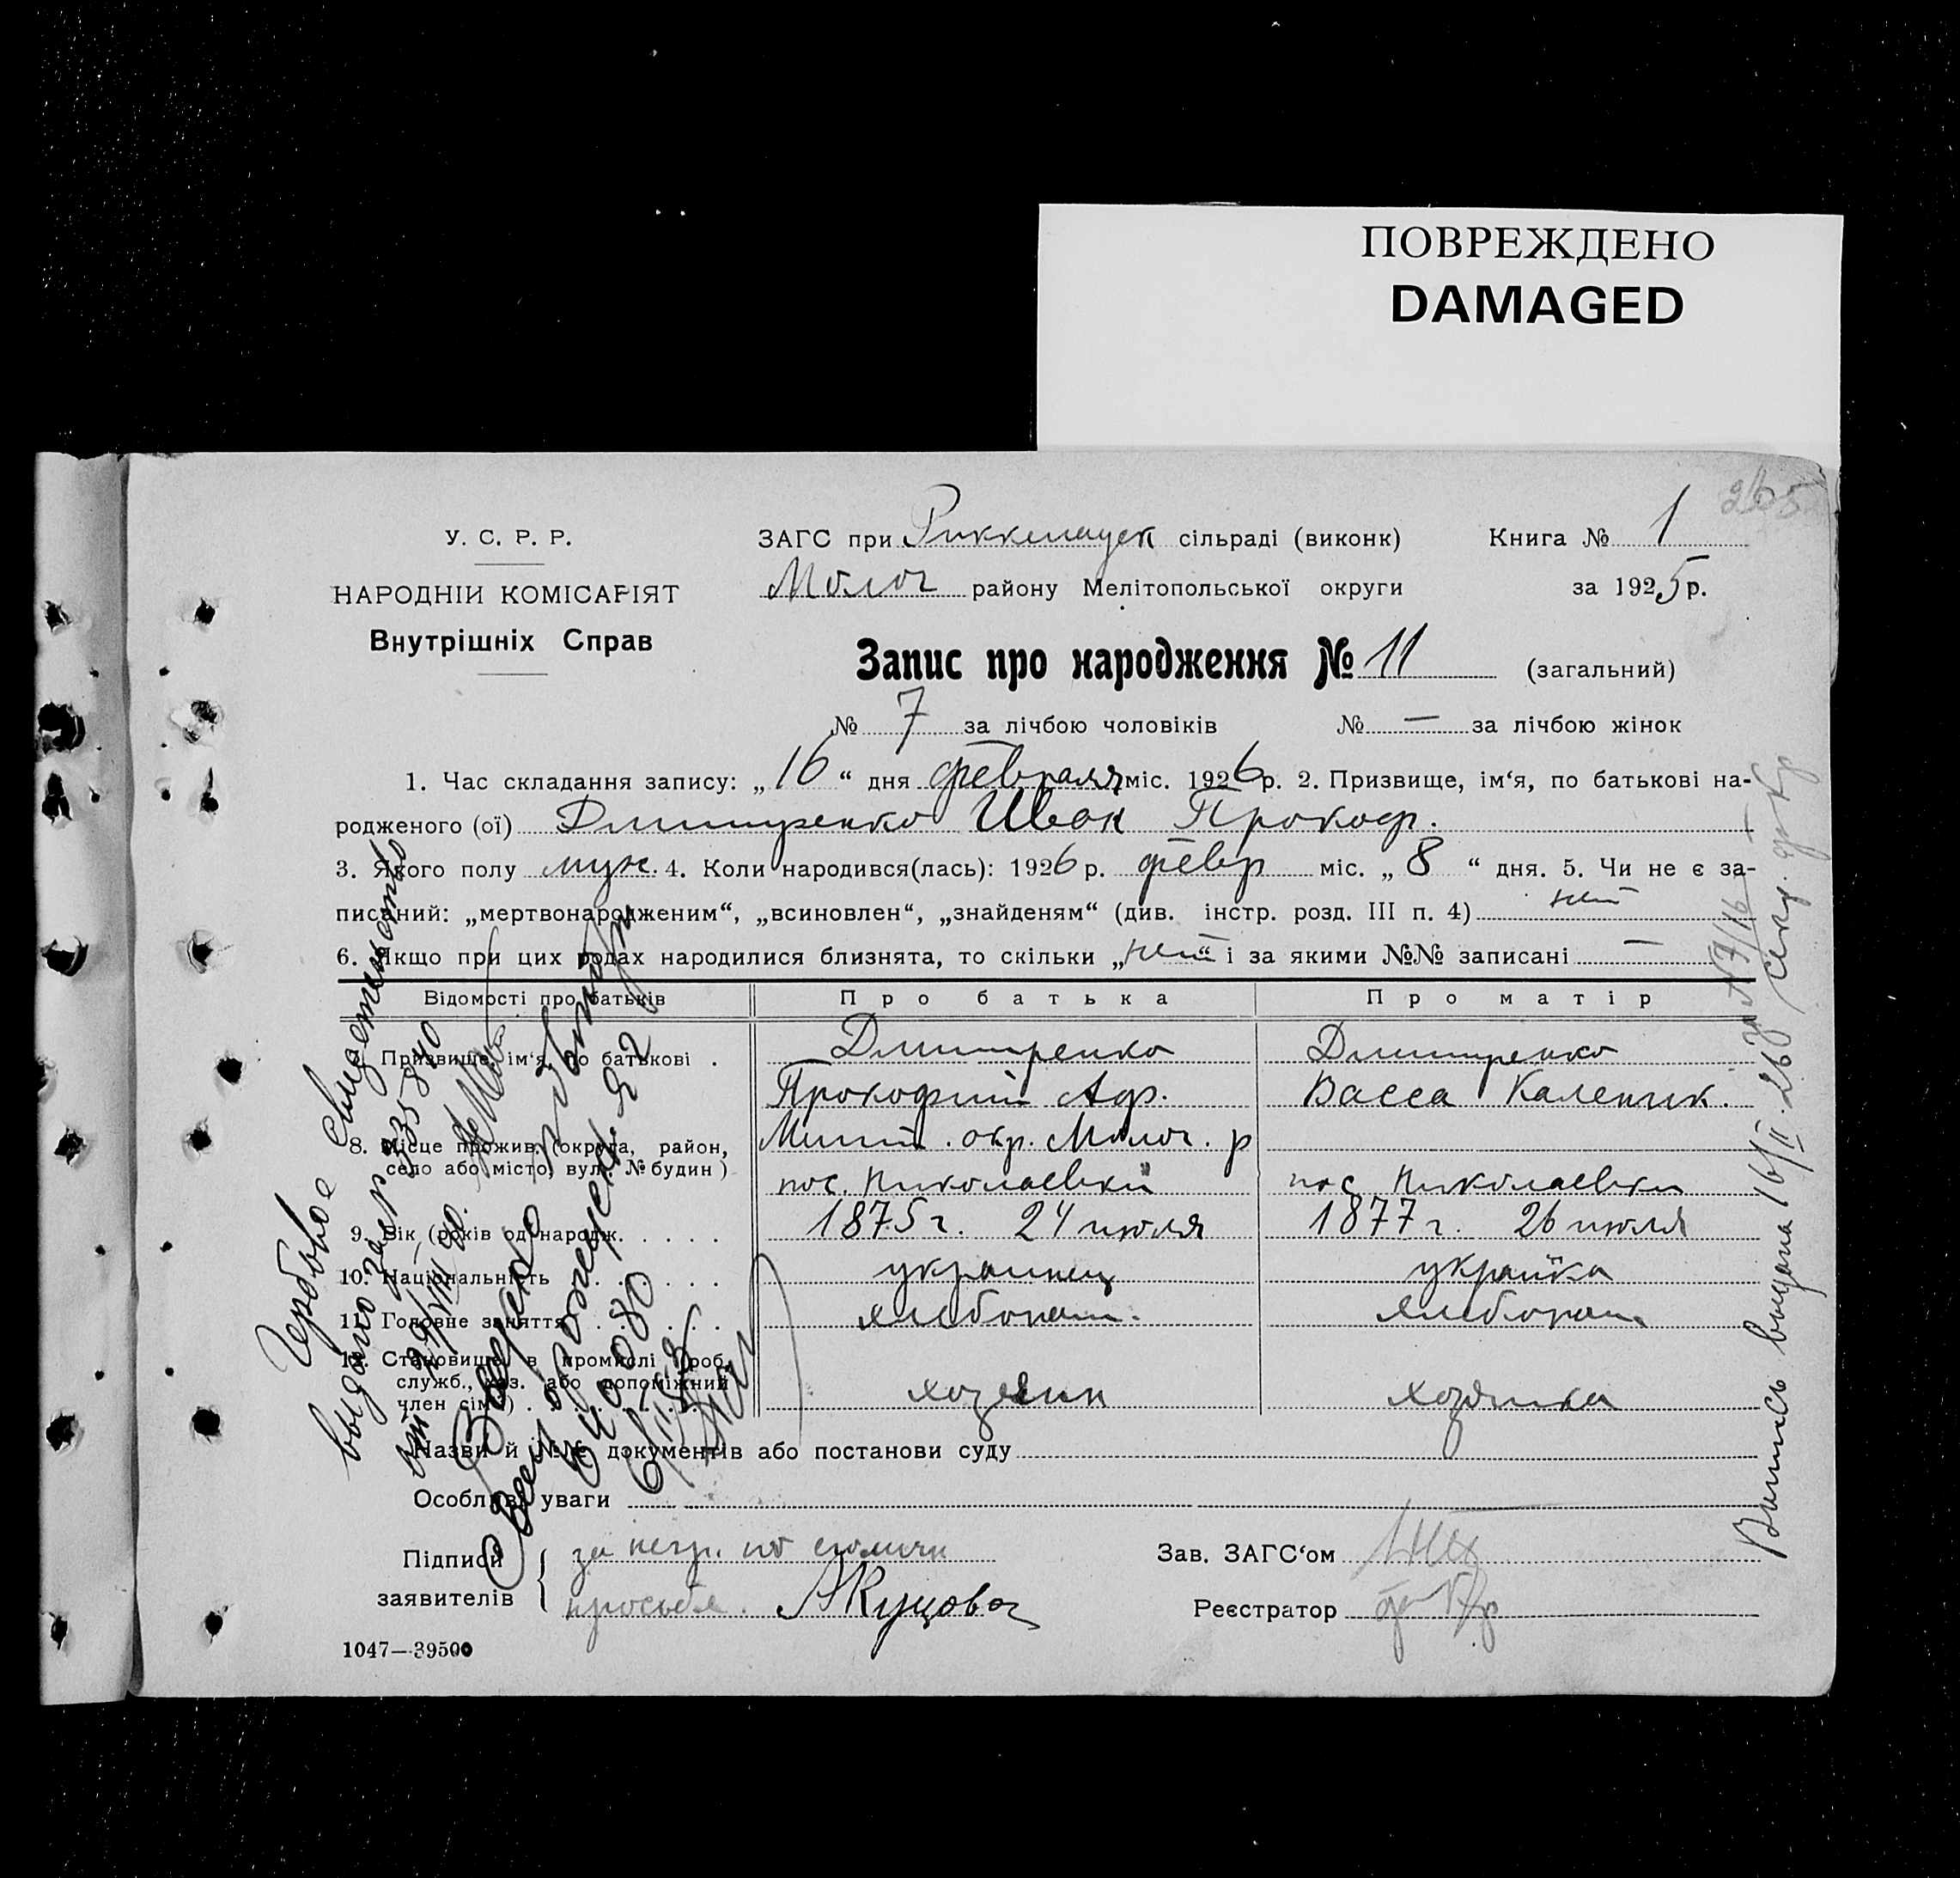 ПОВРЕЖДЕНО
DAMAGED
265
У. С. Р. Р.
НАРОДНІЙ КОМІСАРІЯТ
Внутрішніх Справ
ЗАГС при Риккенауск сільраді (виконк) Книга № 1
Молоч району Мелітопольської округи за 1925 р.
Запис про народження № 11 (загальний)
№ 7 за лічбою чоловіків № — за лічбою жінок
1. Час складання запису: „16“ дня февраля міс. 1926 р. 2. Призвище, ім‘я, по батькові на-
родженого (ої) Дмитренко Иван Прокоф.
3. Якого полу муж. 4. Коли народився(лась): 1926 р. февр міс. „8“ дня. 5. Чи не є за-
писаний: „мертвонародженим“, „всиновлен“, „знайденям“ (див. інстр. розд. III п. 4) нет
6. Якщо при цих родах народилися близнята, то скільки „нет“ і за якими №№ записані —
Відомості про батьків Про батька Про матір
7. Призвище, ім‘я, по батькові . Дмитренко Дмитренко
Прокофий Аф. Васса Каленик.
8. Місце прожив. (округа, район, село або місто, вул. № будин) Мелит. окр. Молоч. р
пос. Николаевки пос Николаевки
9. Вік (років од народж. . . . . . 1875 г. 24 июля 1877 г. 26 июля
10. Національність . . . . . . украинец украйка
11. Головне заняття . . . . . хлебопаш. хлебопаш.
12. Становище в промислі (роб. служб., хаз. або допоміжний член сім‘ї) . . . . . хозяин хозяйка
Назви й №№ документів або постанови суду
Особливі уваги
Підписи заявителів { за негр. по
просьбе. АКуцовол
Зав. ЗАГС‘ом
Реєстратор
1047—39500
Гербовое свидетельство
выдано за р 35840
от 29/VII 30.
Выдано повторн
Свед о рожден. Я 2
640080
Выпись выдана 16/II 26 за № 7/16 секр.